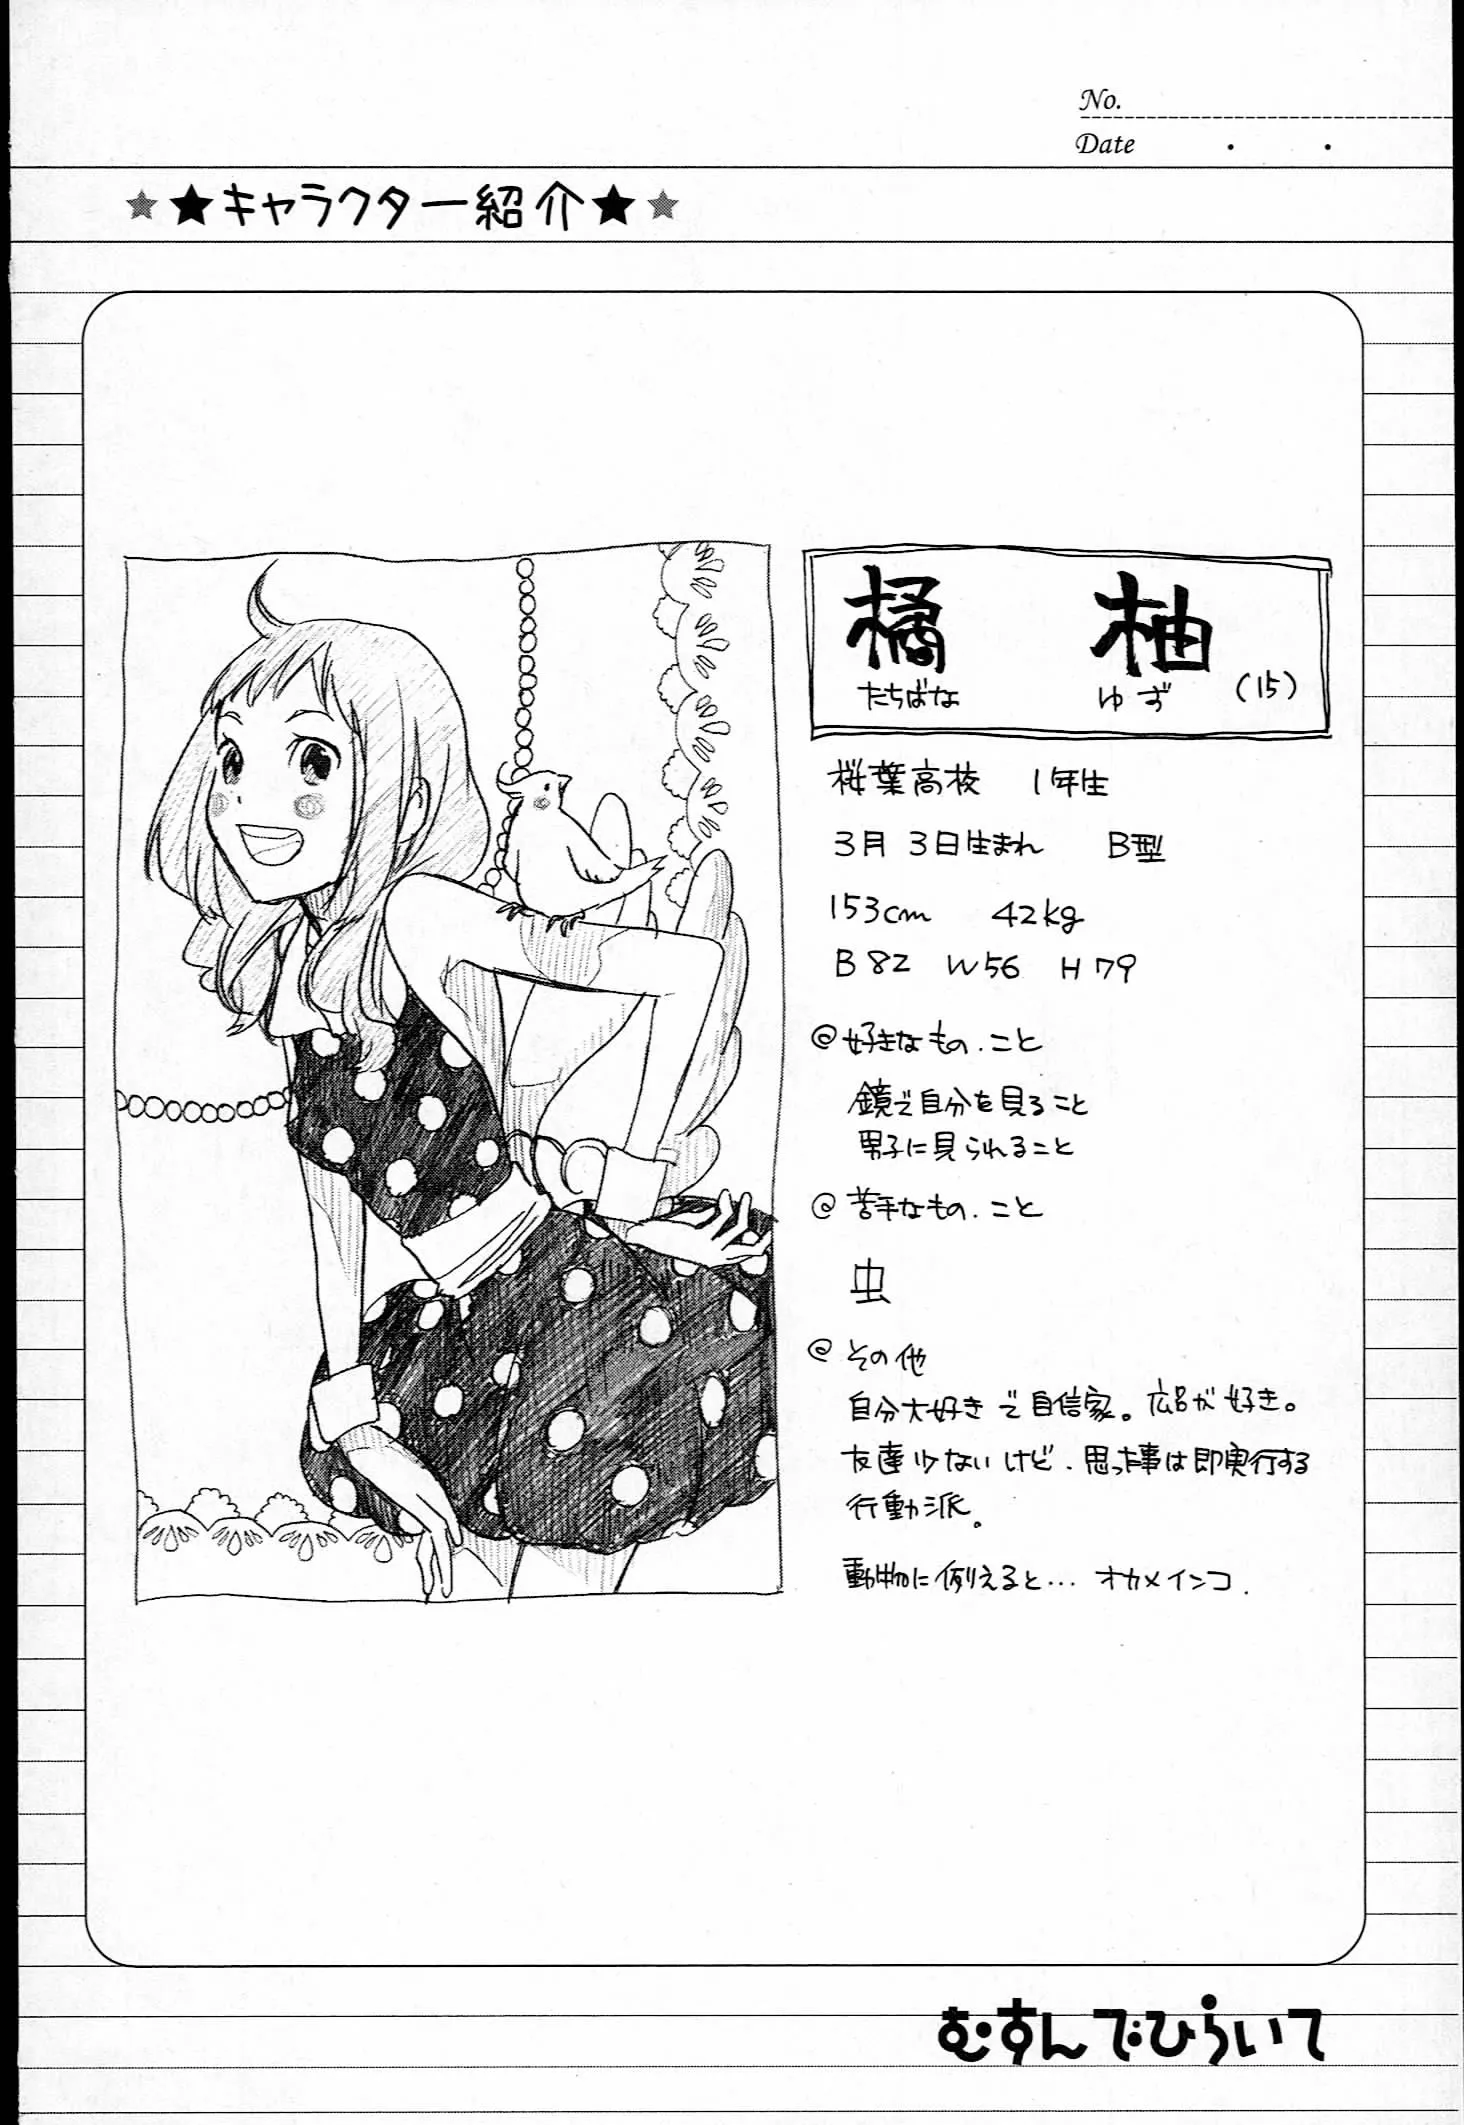 No.
Date ・ ・
★★キャラクター紹介★★
橘 柚
たちばな ゆず (15)
桜葉高校 1年生
3月3日生まれ B型
153cm 42kg
B82 W56 H79
@好きなもの.こと
鏡で自分を見ること
男子に見られること
@苦手なもの.こと
虫
@その他
自分大好きで自信家。広呂が好き。
友達少ないけど.思った事は即実行する
行動派。
動物に例えると… オカメインコ.
むすんでひらいて